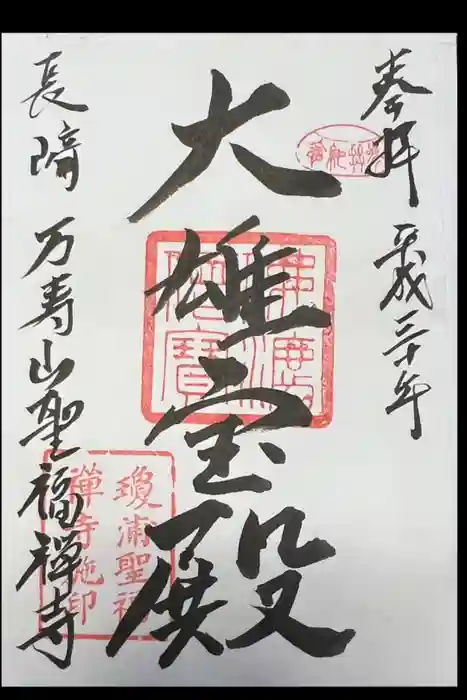 奉拝 平成三十年
大雄宝殿
長崎 万寿山聖福禅寺
佛法僧寶
瓊浦聖福
禅寺施印